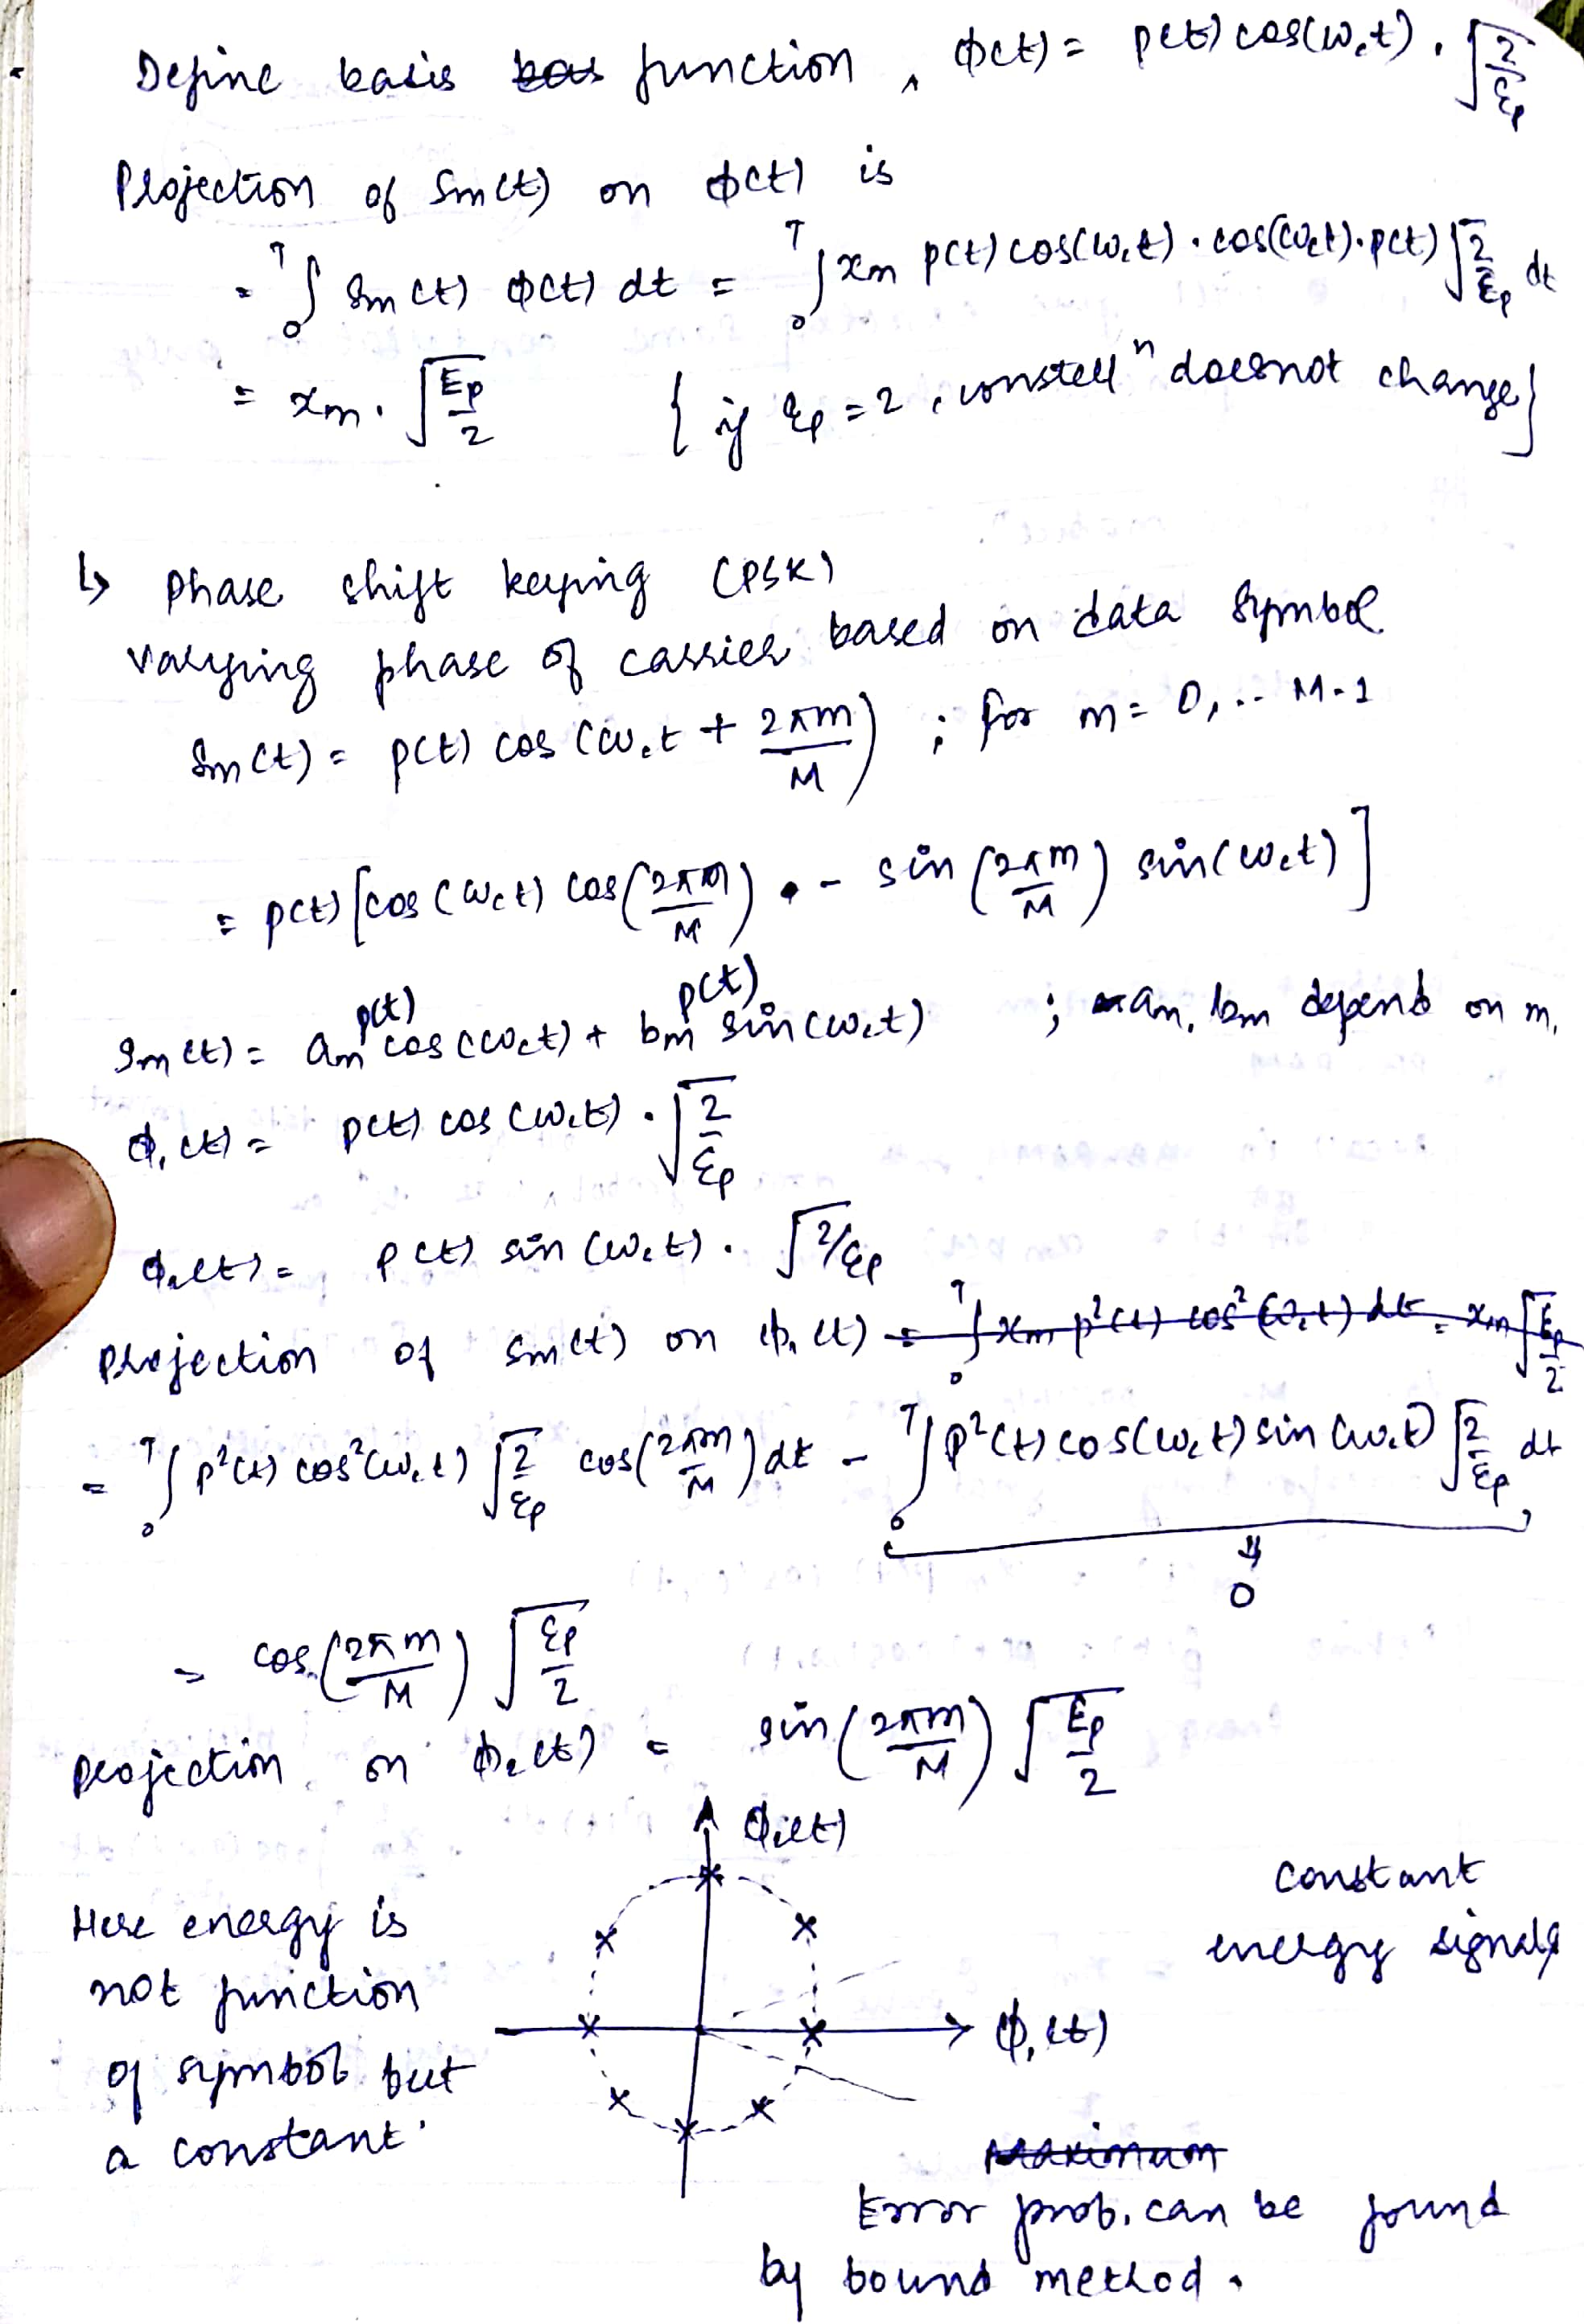 Define basis function, ϕ(t) = p(t) cos(ω_c t) . √(2/Ɛp)
Projection of Sm(t) on ϕ(t) is
= ∫₀ᵀ Sm(t) ϕ(t) dt = ∫₀ᵀ xm p(t) cos(ω_c t) . cos(ω_c t) . p(t) √(2/Ɛp) dt
= xm . √(Ep/2) { if Ɛp = 2, constellⁿ doesnot change}
↳ Phase shift keying (PSK)
varying phase of carrier based on data symbol
Sm(t) = p(t) cos(ω_c t + 2πm/M) ; for m = 0, .. M-1
= p(t) [cos(ω_c t) cos(2πm/M) - sin(2πm/M) sin(ω_c t)]
Sm(t) = am p(t) cos(ω_c t) + bm p(t) sin(ω_c t) ; am, bm depend on m.
ϕ₁(t) = p(t) cos(ω_c t) . √(2/Ɛp)
ϕ₂(t) = p(t) sin(ω_c t) . √(2/Ɛp)
Projection of Sm(t) on ϕ₁(t) = ∫₀ᵀ xm p²(t) cos²(ω_c t) dt = xm √(Ep/2)
= ∫₀ᵀ p²(t) cos²(ω_c t) √(2/Ɛp) cos(2πm/M) dt - ∫₀ᵀ p²(t) cos(ω_c t) sin(ω_c t) √(2/Ɛp) dt
⇓
0
= cos(2πm/M) √(Ɛp/2)
projection on ϕ₂(t) = sin(2πm/M) √(Ep/2)
ϕ₂(t)
Here energy is
not function
of symbol but
a constant.
constant
energy signals
ϕ₁(t)
Maximum
Error prob. can be found
by bound method.